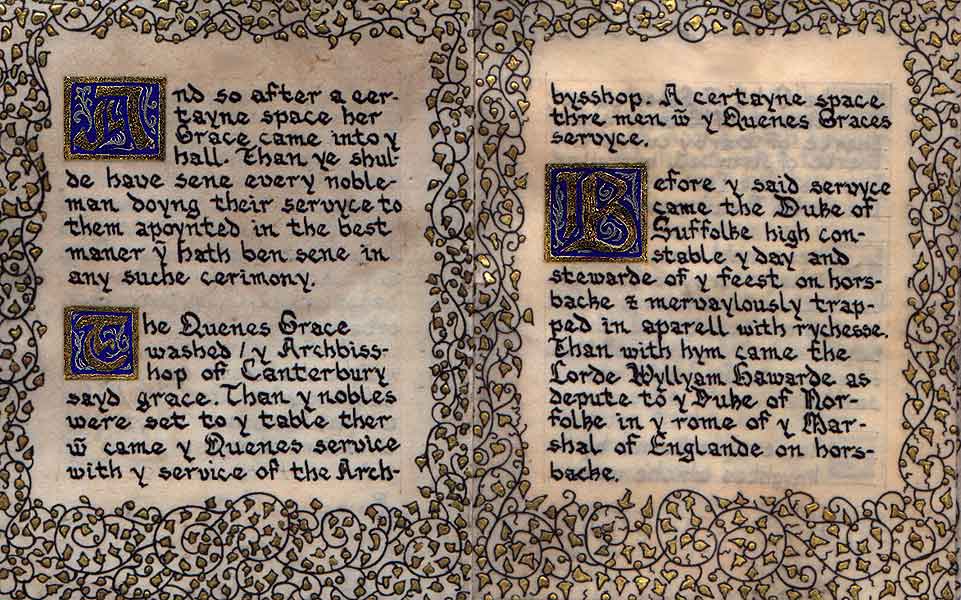 And so after a cer-
tayne space her
Grace came into y
hall. Than ye shul-
de have sene every noble-
man doyng their servyce to
them apoynted in the best
maner ỹ hath ben sene in
any suche cerimony.
The Quenes Grace
washed / y Archbiss-
hop of Canterbury
sayd grace. Than y nobles
were set to y table ther
w̃ came y Quenes service
with y service of the Arch-
bysshop. A certayne space
thre men w̃ y Quenes Graces
servyce.
Before y said servyce
came the Duke of
Suffolke high con-
stable y day and
stewarde of y feest on hors-
backe & mervaylously trap-
ped in aparell with rychesse.
Than with hym came the
Lorde Wyllyam Hawarde as
depute to y Duke of Nor-
folke in y rome of y Mar-
shal of Englande on hors-
backe.